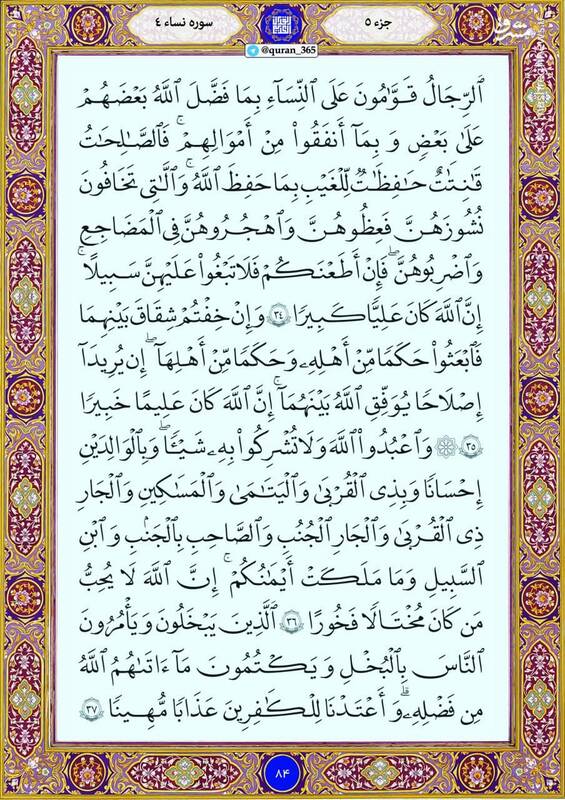 جزء ٥
سوره نساء ٤
@quran_365
ٱلرِّجَالُ قَوَّٰمُونَ عَلَى ٱلنِّسَآءِ بِمَا فَضَّلَ ٱللَّهُ بَعْضَهُمْ
عَلَىٰ بَعْضٍ وَ بِمَآ أَنفَقُوا۟ مِنْ أَمْوَٰلِهِمْ ۚ فَٱلصَّٰلِحَٰتُ
قَٰنِتَٰتٌ حَٰفِظَٰتٌ لِّلْغَيْبِ بِمَا حَفِظَ ٱللَّهُ ۚ وَٱلَّٰتِى تَخَافُونَ
نُشُوزَهُنَّ فَعِظُوهُنَّ وَٱهْجُرُوهُنَّ فِى ٱلْمَضَاجِعِ
وَٱضْرِبُوهُنَّ ۖ فَإِنْ أَطَعْنَكُمْ فَلَا تَبْغُوا۟ عَلَيْهِنَّ سَبِيلًا ۗ
إِنَّ ٱللَّهَ كَانَ عَلِيًّا كَبِيرًا ٣٤ وَإِنْ خِفْتُمْ شِقَاقَ بَيْنِهِمَا
فَٱبْعَثُوا۟ حَكَمًا مِّنْ أَهْلِهِۦ وَحَكَمًا مِّنْ أَهْلِهَآ ۖ إِن يُرِيدَآ
إِصْلَٰحًا يُوَفِّقِ ٱللَّهُ بَيْنَهُمَآ ۗ إِنَّ ٱللَّهَ كَانَ عَلِيمًا خَبِيرًا
٣٥ ۞ وَٱعْبُدُوا۟ ٱللَّهَ وَلَا تُشْرِكُوا۟ بِهِۦ شَيْـًٔا ۖ وَبِٱلْوَٰلِدَيْنِ
إِحْسَٰنًا وَبِذِى ٱلْقُرْبَىٰ وَٱلْيَتَٰمَىٰ وَٱلْمَسَٰكِينِ وَٱلْجَارِ
ذِى ٱلْقُرْبَىٰ وَٱلْجَارِ ٱلْجُنُبِ وَٱلصَّاحِبِ بِٱلْجَنۢبِ وَٱبْنِ
ٱلسَّبِيلِ وَمَا مَلَكَتْ أَيْمَٰنُكُمْ ۗ إِنَّ ٱللَّهَ لَا يُحِبُّ
مَن كَانَ مُخْتَالًا فَخُورًا ٣٦ ٱلَّذِينَ يَبْخَلُونَ وَيَأْمُرُونَ
ٱلنَّاسَ بِٱلْبُخْلِ وَيَكْتُمُونَ مَآ ءَاتَىٰهُمُ ٱللَّهُ
مِن فَضْلِهِۦ ۗ وَأَعْتَدْنَا لِلْكَٰفِرِينَ عَذَابًا مُّهِينًا ٣٧
٨۴